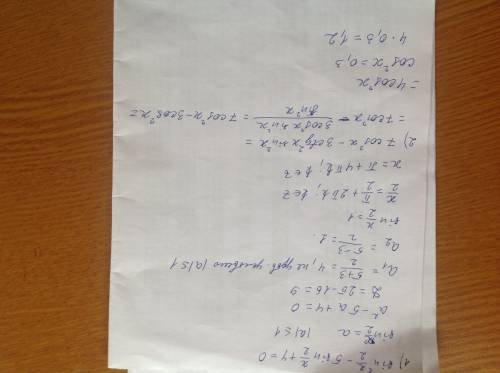 1) sin² x/2 - 5 sin x/2 + 4 = 0
sin x/2 = a |a| ≤ 1
a² - 5a + 4 = 0
D = 25 - 16 = 9
a₁ = (5+3)/2 = 4, не удов условию |a| ≤ 1
a₂ = (5-3)/2 = 1.
sin x/2 = 1
x/2 = π/2 + 2πk; k∈z
x = π + 4πk; k∈z
2) 7cos²x - 3ctg²x sin²x =
= 7cos²x - (3cos²x sin²x)/(sin²x) = 7cos²x - 3cos²x =
= 4cos²x
cos²x = 0,3
4 · 0,3 = 1,2